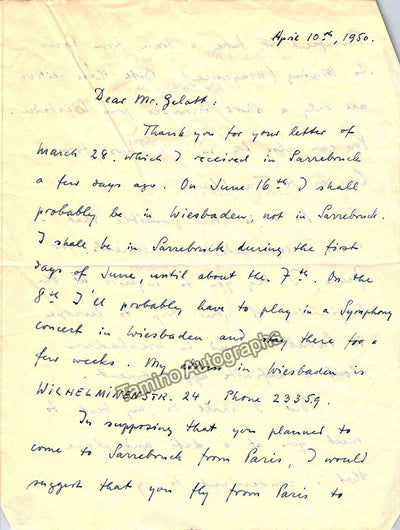 April 10th, 1950.
Dear Mr. Gelatt:
Thank you for your letter of
March 28. which I received in Sarrebruck
a few days ago. On June 16th I shall
probably be in Wiesbaden, not in Sarrebruck.
I shall be in Sarrebruck during the first
days of June, until about the 7th. On the
8th I'll probably have to play in a Symphony
concert in Wiesbaden and stay there for a
few weeks. My address in Wiesbaden is
WILHELMINENSTR. 24, Phone 23359.
In supposing that you planned to
come to Sarrebruck from Paris, I would
suggest that you fly from Paris to
Tamino Autographs